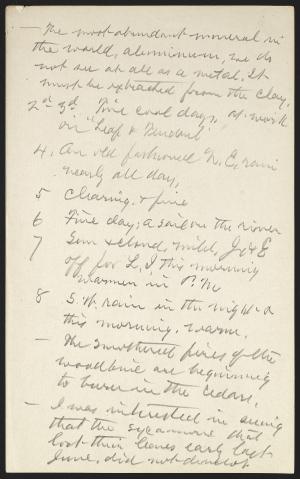 — The most abundant mineral in
the world, aluminum, we do
not see at all as a metal. It
must be extracted from the clay,
2d 3d Fine cool days, at work
on "Leaf & Tendril"
4. An old fashioned N. E, rain
nearly all day,
5 Clearing & fine
6 Fine day; a sail on the river
7 Sun & cloud, mild, J & E
off for L. I, this morning
warmer in P. M
8 S. W. rain in the night &
this morning. warm.
— The smothered fires of the
woodbine are beginning
to burn in the cedars.
— I was interested in seeing
that the sycamore that
lost their leaves early last
June, did not